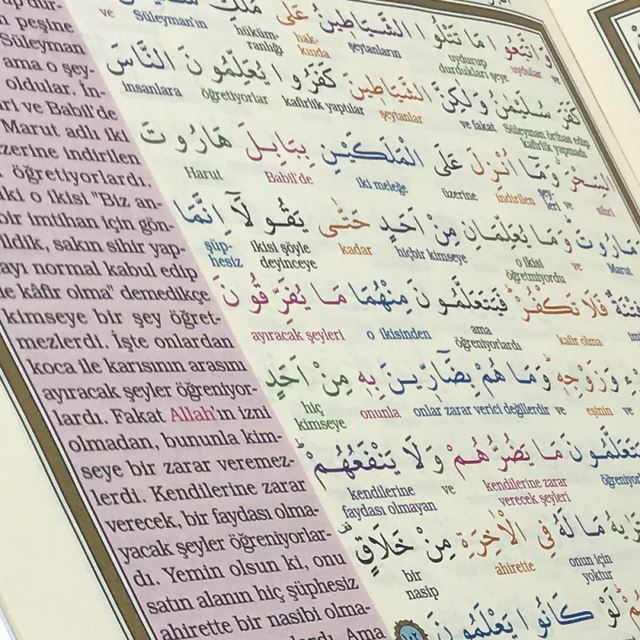 peşine
Süleyman
ama o şey-
oldular. İn-
ri ve Babil'de
Marut adlı iki
zerine indirilen
öğretiyorlardı.
ki o ikisi "Biz an-
bir imtihan için gön-
ildik, sakın sihir yap-
ayı normal kabul edip
kâfir olma" demedikçe
kimseye bir şey öğret-
mezlerdi. İşte onlardan
koca ile karısının arasını
ayıracak şeyler öğreniyor-
lardı. Fakat Allah'ın izni
olmadan, bununla kim-
seye bir zarar veremez-
lerdi. Kendilerine zarar
verecek, bir faydası olma-
yacak şeyler öğreniyorlar-
dı. Yemin olsun ki, onu
satın alanın hiç şüphesiz
ahirette bir nasibi olma-
وَاتَّبَعُوا مَا تَتْلُوا الشَّيَاطِينُ عَلَى مُلْكِ
ve uydular uydurup durdukları şeye şeytanların hakkında hükümranlığı Süleyman'ın ve
كَفَرَ سُلَيْمٰنُ وَلٰكِنَّ الشَّيَاطِينَ كَفَرُوا يُعَلِّمُونَ النَّاسَ
Süleyman ve fakat şeytanlar kafirlik yaptılar öğretiyorlar insanlara
السِّحْرَ وَمَا اُنْزِلَ عَلَى الْمَلَكَيْنِ بِبَابِلَ هَارُوتَ
sihri ve şeyleri indirilen üzerine iki meleğe Babil'de Harut
مَارُوتَ وَمَا يُعَلِّمَانِ مِنْ اَحَدٍ حَتّٰى يَقُولَٓا اِنَّمَا
Marut ve o ikisi öğretmiyordu hiçbir kimseye kadar ikisi şöyle deyinceye şüphesiz
فِتْنَةٌ فَلَا تَكْفُرْ فَيَتَعَلَّمُونَ مِنْهُمَا مَا يُفَرِّقُونَ
kafir olma ama öğreniyorlardı o ikisinden ayıracak şeyleri
وَزَوْجِهٖ وَمَا هُمْ بِضَٓارّٖينَ بِهٖ مِنْ اَحَدٍ
eşinin ve onlar zarar verici değillerdir ve onunla hiç kimseye
يَتَعَلَّمُونَ مَا يَضُرُّهُمْ وَلَا يَنْفَعُهُمْ
kendilerine zarar verecek şeyleri ve kendilerine faydası olmayan
مَا لَهُ فِي الْاٰخِرَةِ مِنْ خَلَاقٍ
onun için yoktur ahirette bir nasip
لَوْ كَانُوا يَعْلَمُونَ